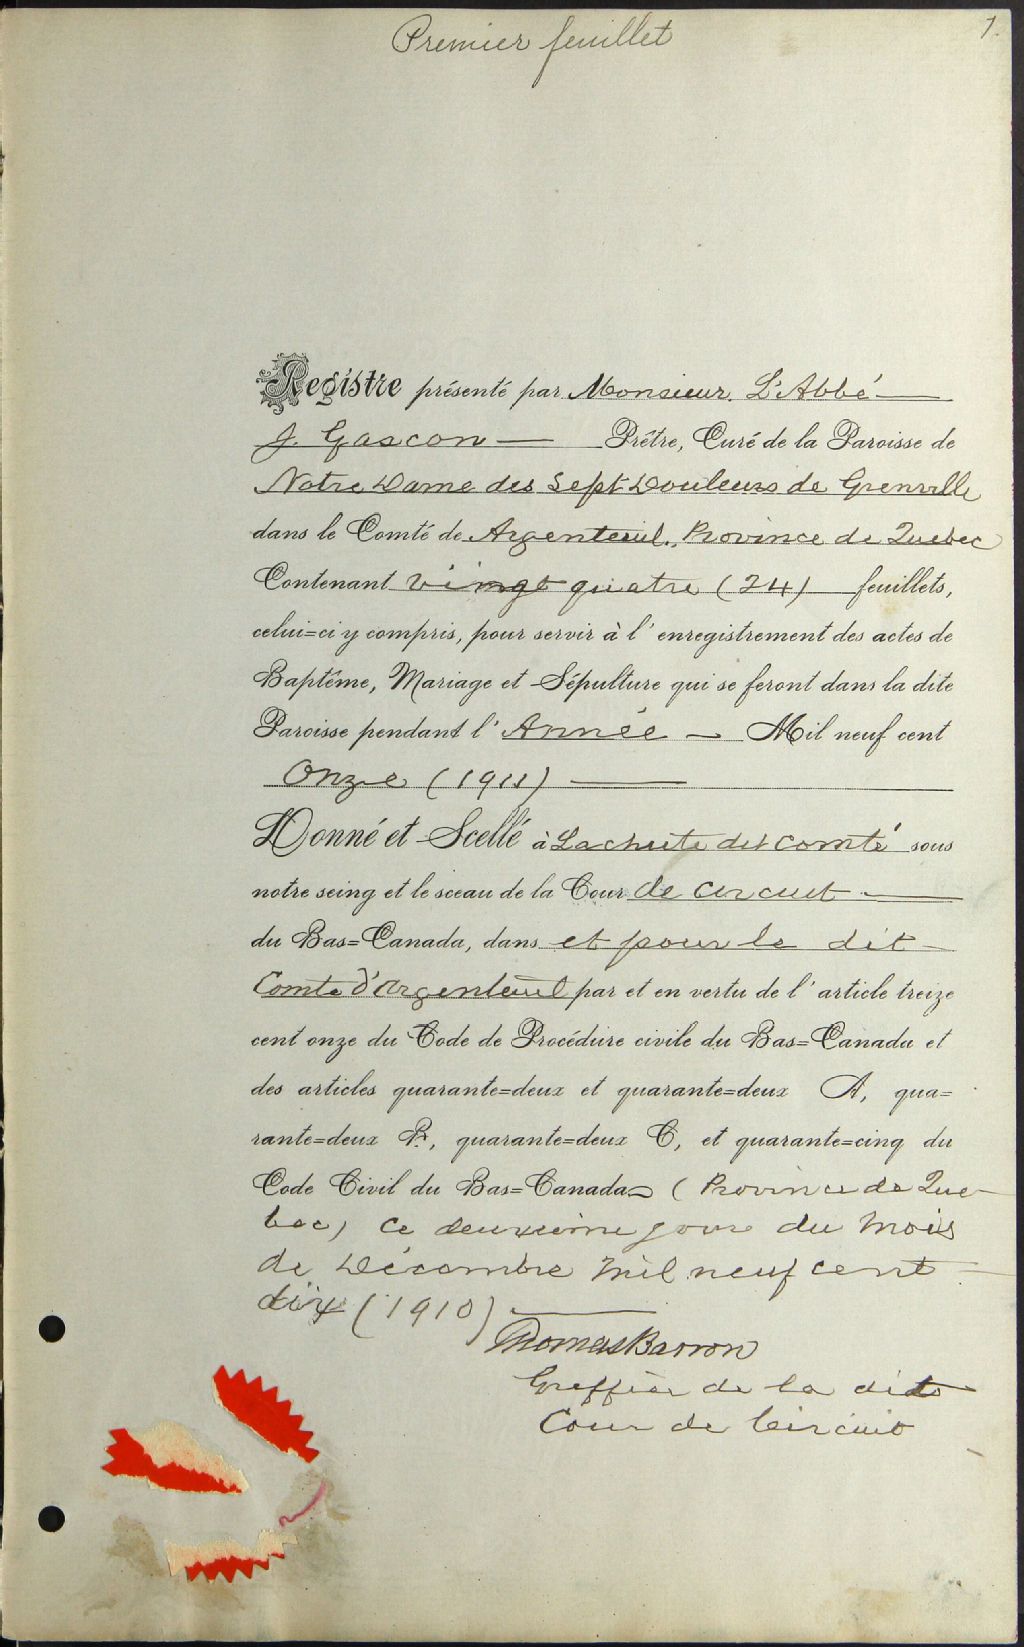 Premier feuillet
1.
Registre présenté par Monsieur. L'Abbé
J. Gascon Prêtre, Curé de la Paroisse de
Notre Dame des Sept Douleurs de Grenville
dans le Comté de Argenteuil. Province de Quebec
Contenant vingt quatre (24) feuillets,
celui=ci y compris, pour servir à l'enregistrement des actes de
Baptême, Mariage et Sépulture qui se feront dans la dite
Paroisse pendant l'Année — Mil neuf cent
Onze (1911)
Donné et Scellé à Lachute dit comté sous
notre seing et le sceau de la Cour de circuit
du Bas=Canada, dans et pour le dit
Comte d'Argenteuil par et en vertu de l'article treize
cent onze du Code de Procédure civile du Bas=Canada et
des articles quarante=deux et quarante=deux A, qua=
rante=deux B, quarante=deux C, et quarante=cinq du
Code Civil du Bas=Canada (Province de Que-
bec) ce deuxieme jour du mois
de Décembre mil neuf cent
dix (1910)
Thomas Barron
Greffier de la dite
Cour de Circuit